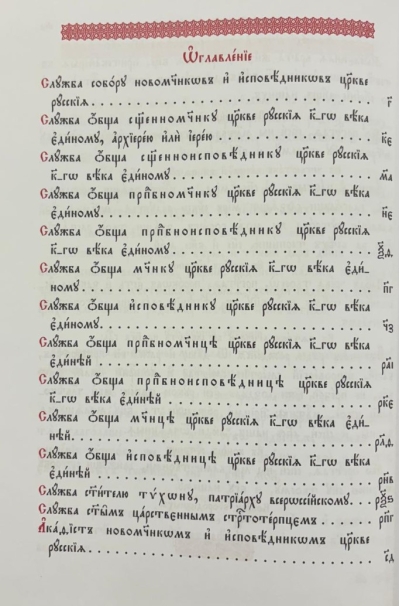 Ѡ҆главле́нїе
Слꙋ́жба собо́рꙋ новомч҃никѡвъ и҆ и҆сповѣ́дникѡвъ цр҃кве
рꙋ́сскїѧ. г҃
Слꙋ́жба ѻ҆́бща сщ҃енномч҃никꙋ цр҃кве рꙋ́сскїѧ к҃-гѡ вѣ́ка
є҆ди́номꙋ, а҆рхїере́ю и҆лѝ і҆ере́ю. к҃є
Слꙋ́жба ѻ҆́бща сщ҃енноисповѣ́дникꙋ цр҃кве рꙋ́сскїѧ
к҃-гѡ вѣ́ка є҆ди́номꙋ. м҃а
Слꙋ́жба ѻ҆́бща прпⷣбномч҃никꙋ цр҃кве рꙋ́сскїѧ к҃-гѡ вѣ́ка
є҆ди́номꙋ. н҃є
Слꙋ́жба ѻ҆́бща прпⷣбноисповѣ́дникꙋ цр҃кве рꙋ́сскїѧ
к҃-гѡ вѣ́ка є҆ди́номꙋ. ѯ҃ѳ
Слꙋ́жба ѻ҆́бща мч҃никꙋ цр҃кве рꙋ́сскїѧ к҃-гѡ вѣ́ка є҆ди́_
номꙋ. п҃г
Слꙋ́жба ѻ҆́бща и҆сповѣ́дникꙋ цр҃кве рꙋ́сскїѧ к҃-гѡ вѣ́ка
є҆ди́номꙋ. ч҃з
Слꙋ́жба ѻ҆́бща прпⷣбномч҃ницѣ цр҃кве рꙋ́сскїѧ к҃-гѡ вѣ́ка
є҆ди́нѣй. ра҃і
Слꙋ́жба ѻ҆́бща прпⷣбноисповѣ́дницѣ цр҃кве рꙋ́сскїѧ
к҃-гѡ вѣ́ка є҆ди́нѣй. рк҃є
Слꙋ́жба ѻ҆́бща мч҃ницѣ цр҃кве рꙋ́сскїѧ к҃-гѡ вѣ́ка є҆ди́_
нѣй. рл҃ѳ
Слꙋ́жба ѻ҆́бща и҆сповѣ́дницѣ цр҃кве рꙋ́сскїѧ к҃-гѡ вѣ́ка
є҆ди́нѣй. рн҃в
Слꙋ́жба ст҃и́телю тѵ́хонꙋ, патрїа́рхꙋ всерѡссі́йскомꙋ. рѯ҃ѕ
Слꙋ́жба ст҃ы̑мъ ца́рственнымъ стрⷭ҇тоте́рпцемъ. рп҃г
А҆ка́ѳїстъ новомч҃никѡмъ и҆ и҆сповѣ́дникѡмъ цр҃кве
рꙋ́сскїѧ. с҃д